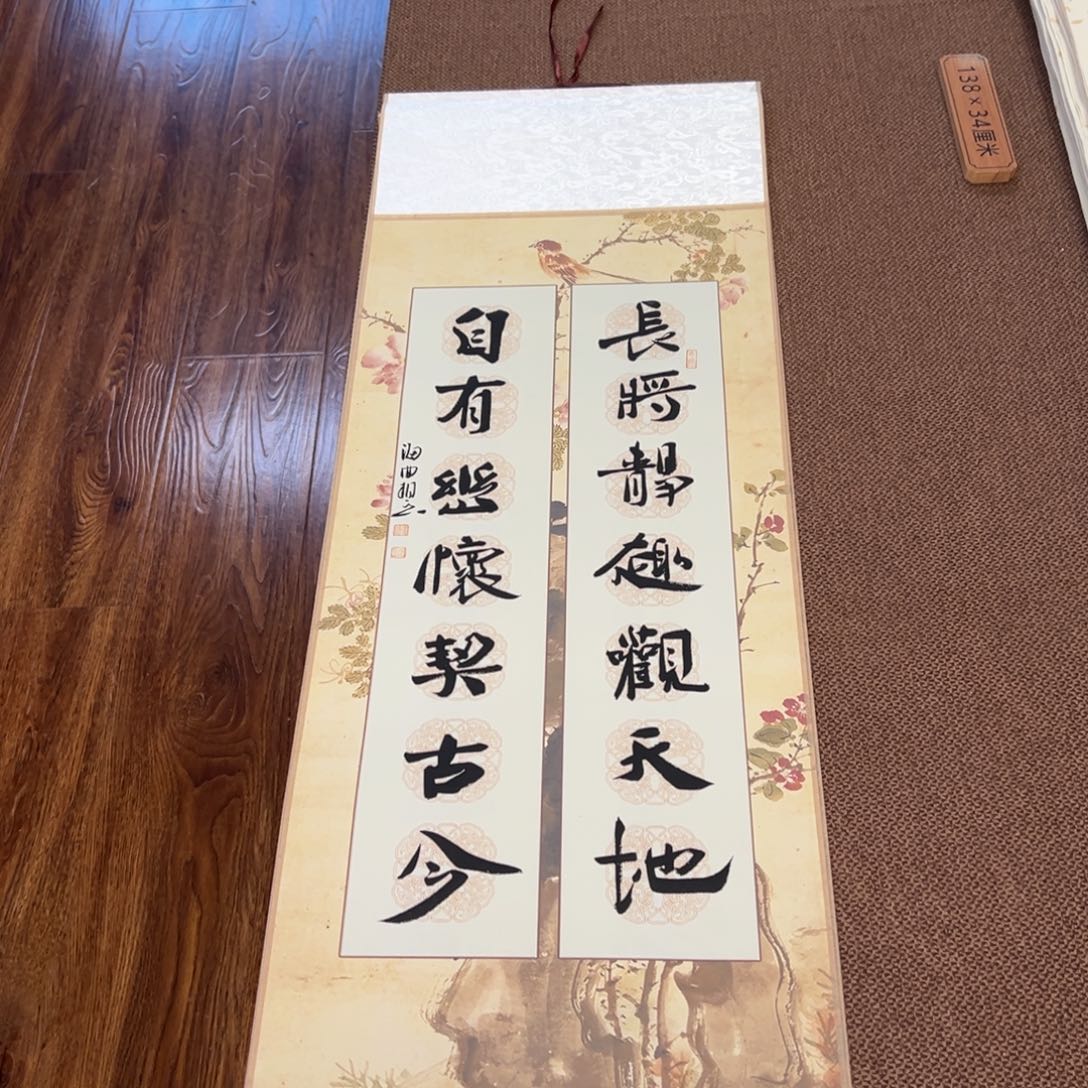 長將靜趣觀天地
自有幽懷契古今
138×34厘米